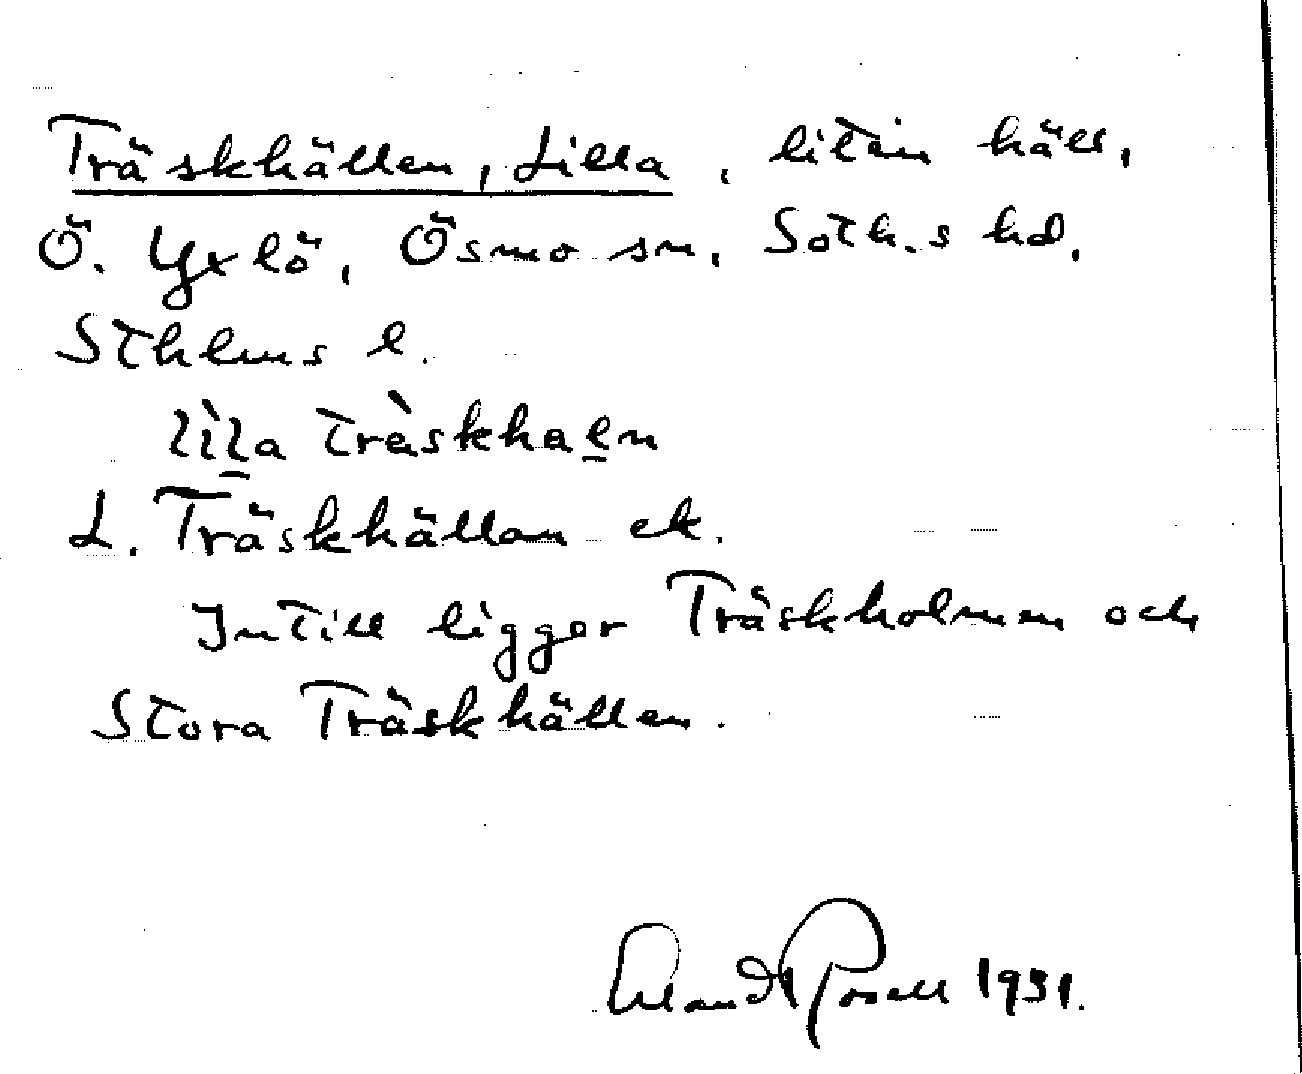 Träskhällen, Lilla, liten häll,
Ö. Yxlö, Ösmo sn, Soth.s hd,
Sthlms l.
lìla trä̀skhaln
L. Träskhällan ek.
Intill ligger Träskholmen och
Stora Träskhällen.
Erland Rosell 1951.